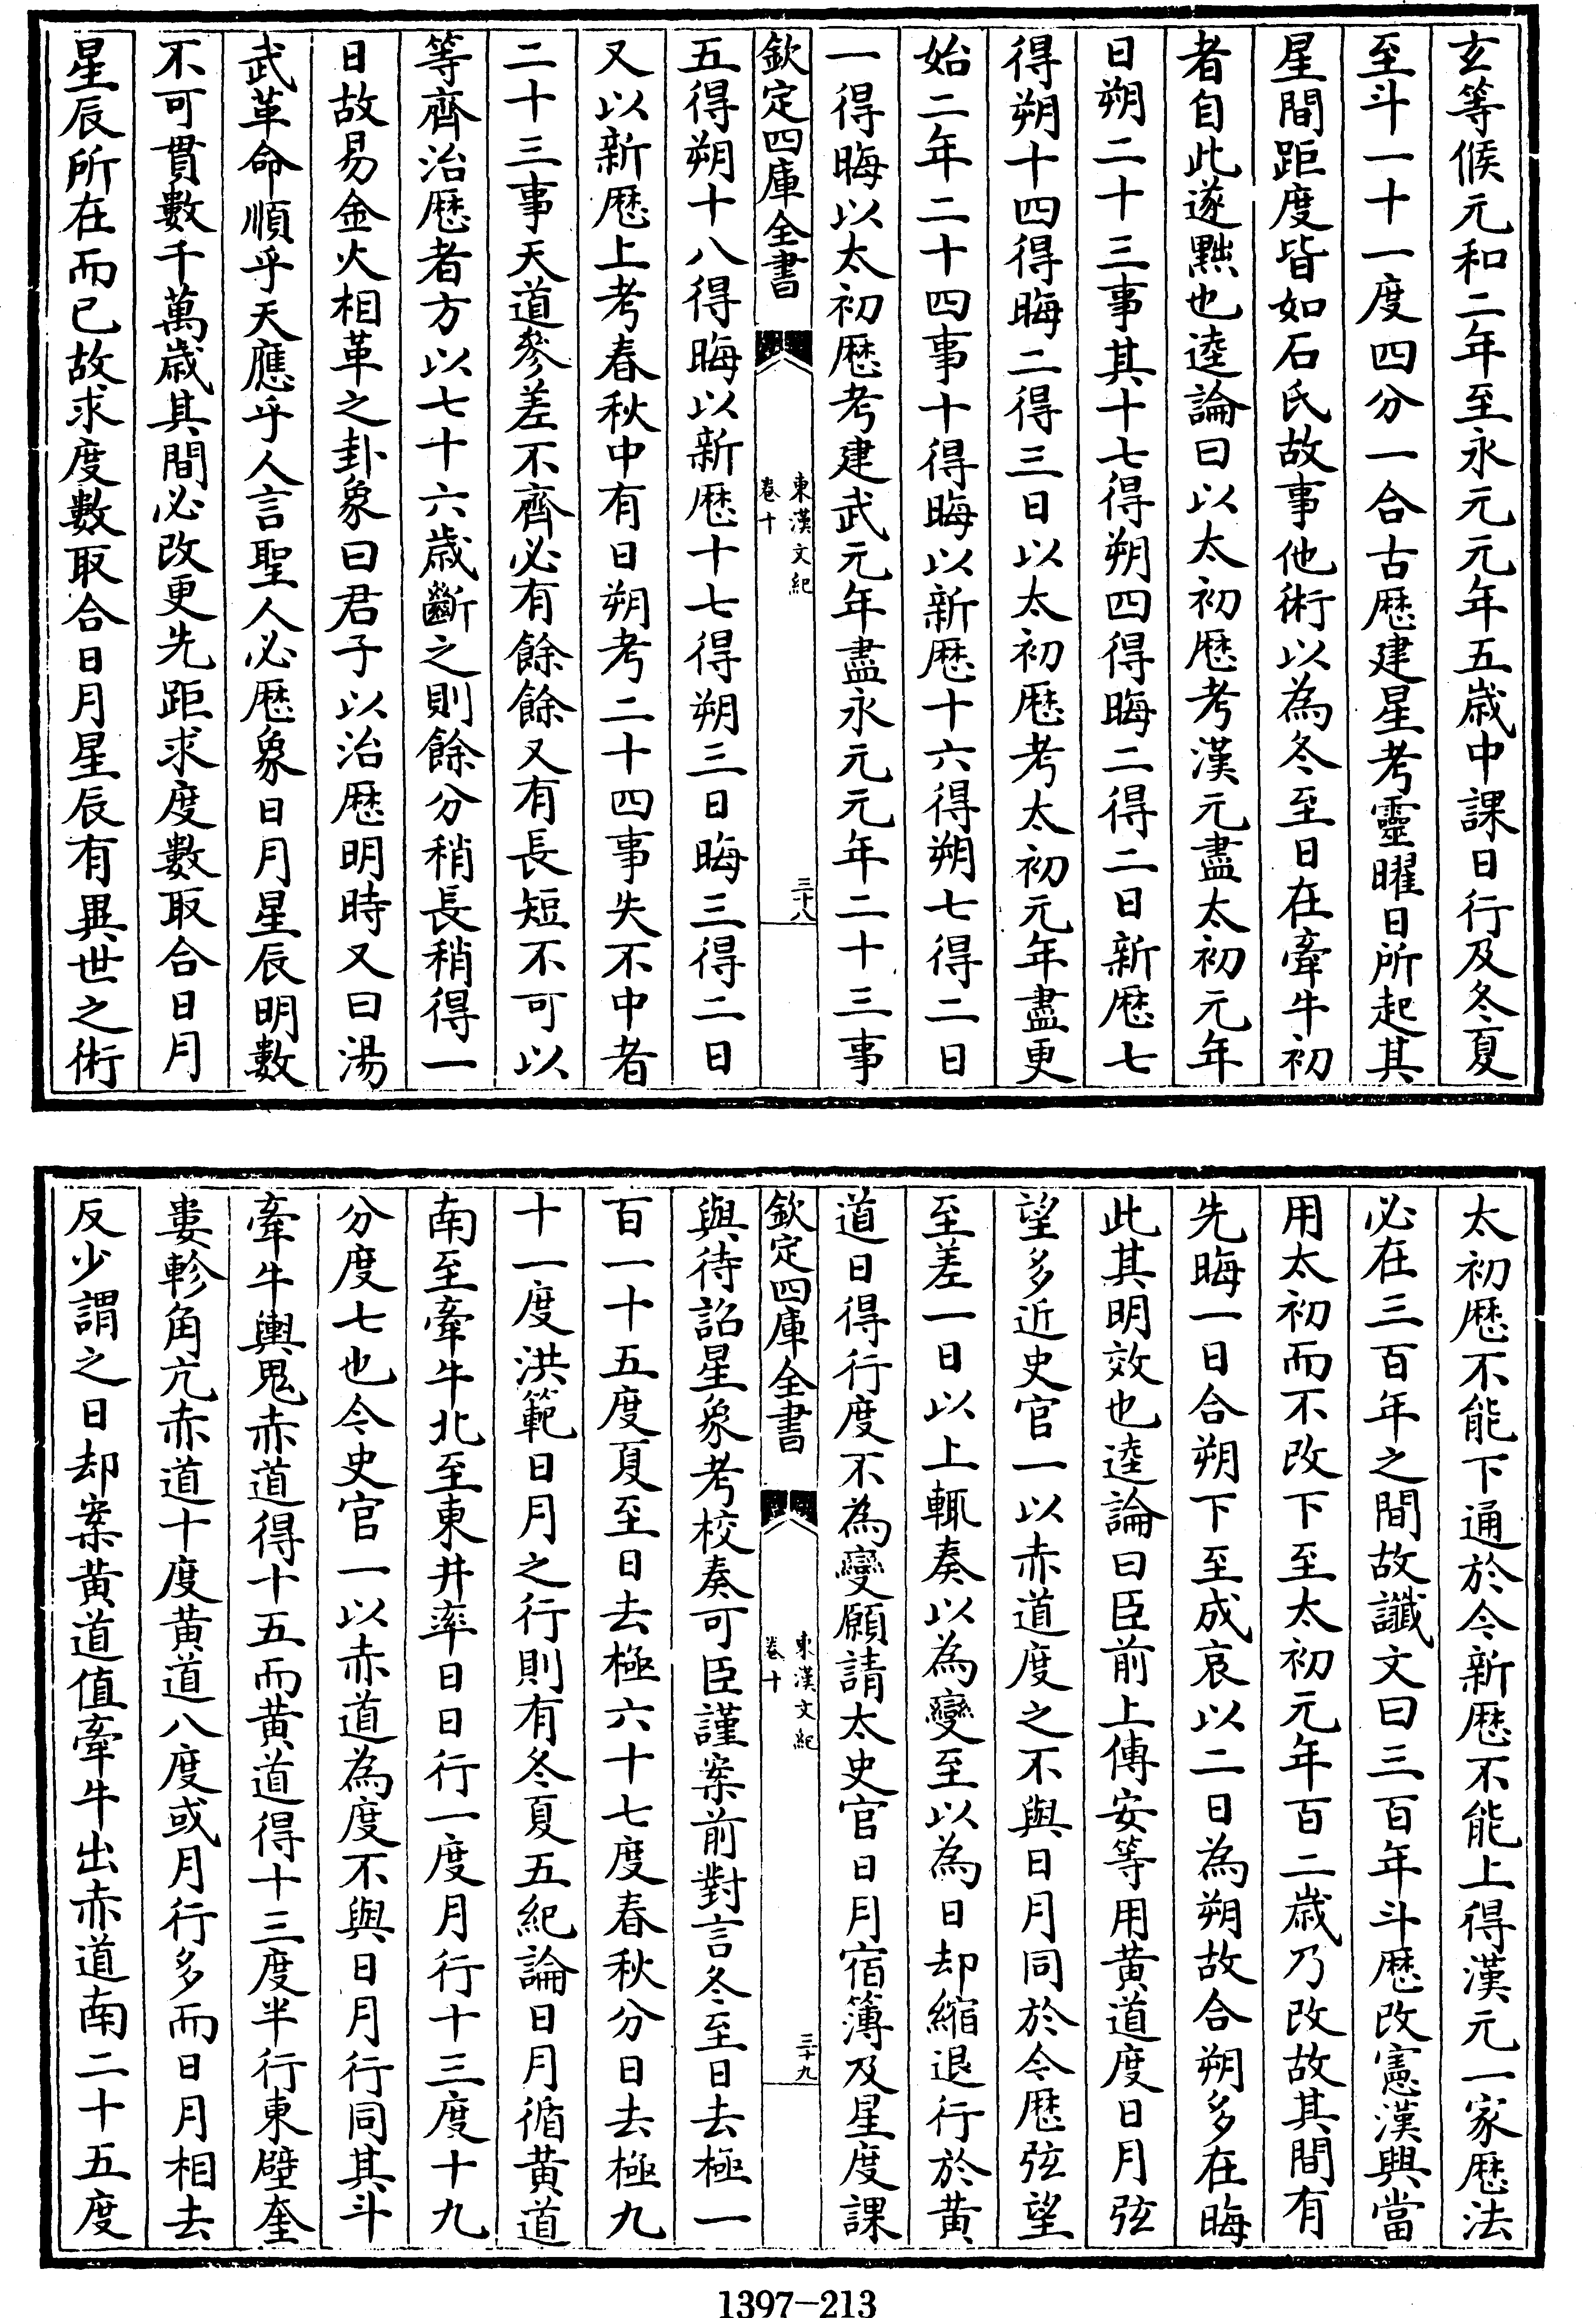 玄等候元和二年至永元元年五歲中課日行及冬夏
至斗一十一度四分一合古厯建星考靈曜日所起其
星間距度皆如石氏故事他術以為冬至日在牽牛初
者自此遂黜也逵論曰以太初厯考漢元盡太初元年
日朔二十三事其十七得朔四得晦二得二日新厯七
得朔十四得晦二得三日以太初厯考太初元年盡更
始二年二十四事十得晦以新厯十六得朔七得二日
一得晦以太初厯考建武元年盡永元元年二十三事
欽定四庫全書
東漢文紀
卷十
三十八
五得朔十八得晦以新厯十七得朔三日晦三得二日
又以新厯上考春秋中有日朔考二十四事失不中者
二十三事天道參差不齊必有餘餘又有長短不可以
等齊治厯者方以七十六歲斷之則餘分稍長稍得一
日故易金火相革之卦象曰君子以治厯明時又曰湯
武革命順乎天應乎人言聖人必厯象日月星辰明數
不可貫數千萬歲其間必改更先距求度數取合日月
星辰所在而已故求度數取合日月星辰有異世之術
太初厯不能下通於今新厯不能上得漢元一家厯法
必在三百年之間故讖文曰三百年斗厯改憲漢興當
用太初而不改下至太初元年百二歲乃改故其間有
先晦一日合朔下至成哀以二日為朔故合朔多在晦
此其明效也逵論曰臣前上傅安等用黄道度日月弦
望多近史官一以赤道度之不與日月同於今厯弦望
至差一日以上輒奏以為變至以為日却縮退行於黄
道日得行度不為變願請太史官日月宿簿及星度課
欽定四庫全書
東漢文紀
卷十
三十九
與待詔星象考校奏可臣謹案前對言冬至日去極一
百一十五度夏至日去極六十七度春秋分日去極九
十一度洪範日月之行則有冬夏五紀論日月循黄道
南至牽牛北至東井率日日行一度月行十三度十九
分度七也今史官一以赤道為度不與日月行同其斗
牽牛輿鬼赤道得十五而黄道得十三度半行東壁奎
婁軫角亢赤道十度黄道八度或月行多而日月相去
反少謂之日却案黄道值牽牛出赤道南二十五度
1397-213